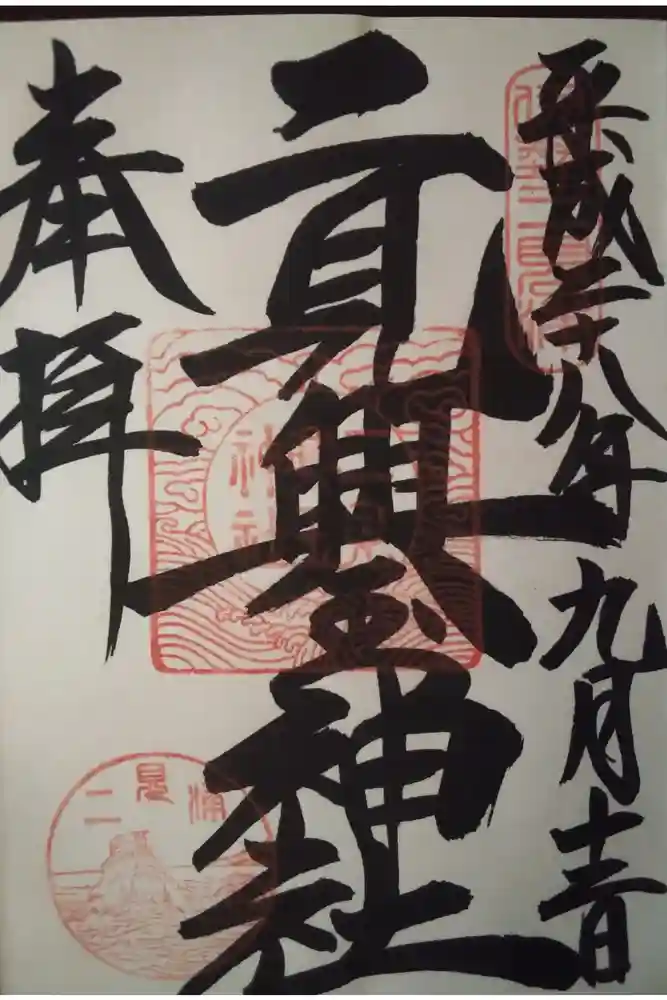 平成二十八年九月
二見興玉神社
奉拝
神社
二見浦